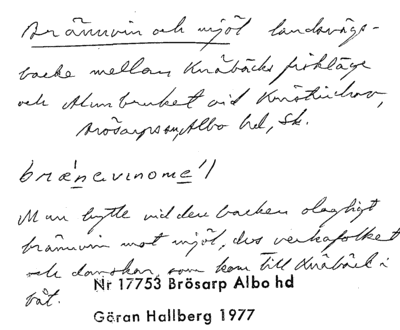 Brännvin och mjöl landsvägs-
backe mellan Knäbäcks fiskläge
och Alunbruket vid Kristinehov,
Brösarps sn, Albo hd, Sk.
brænevinomé'l
Man bytte vid den backen olagligt
brännvin mot mjöl, dvs verkafolket
och danskar, som kom till Knäbäck i
båt.
Nr 17753 Brösarp Albo hd
Göran Hallberg 1977